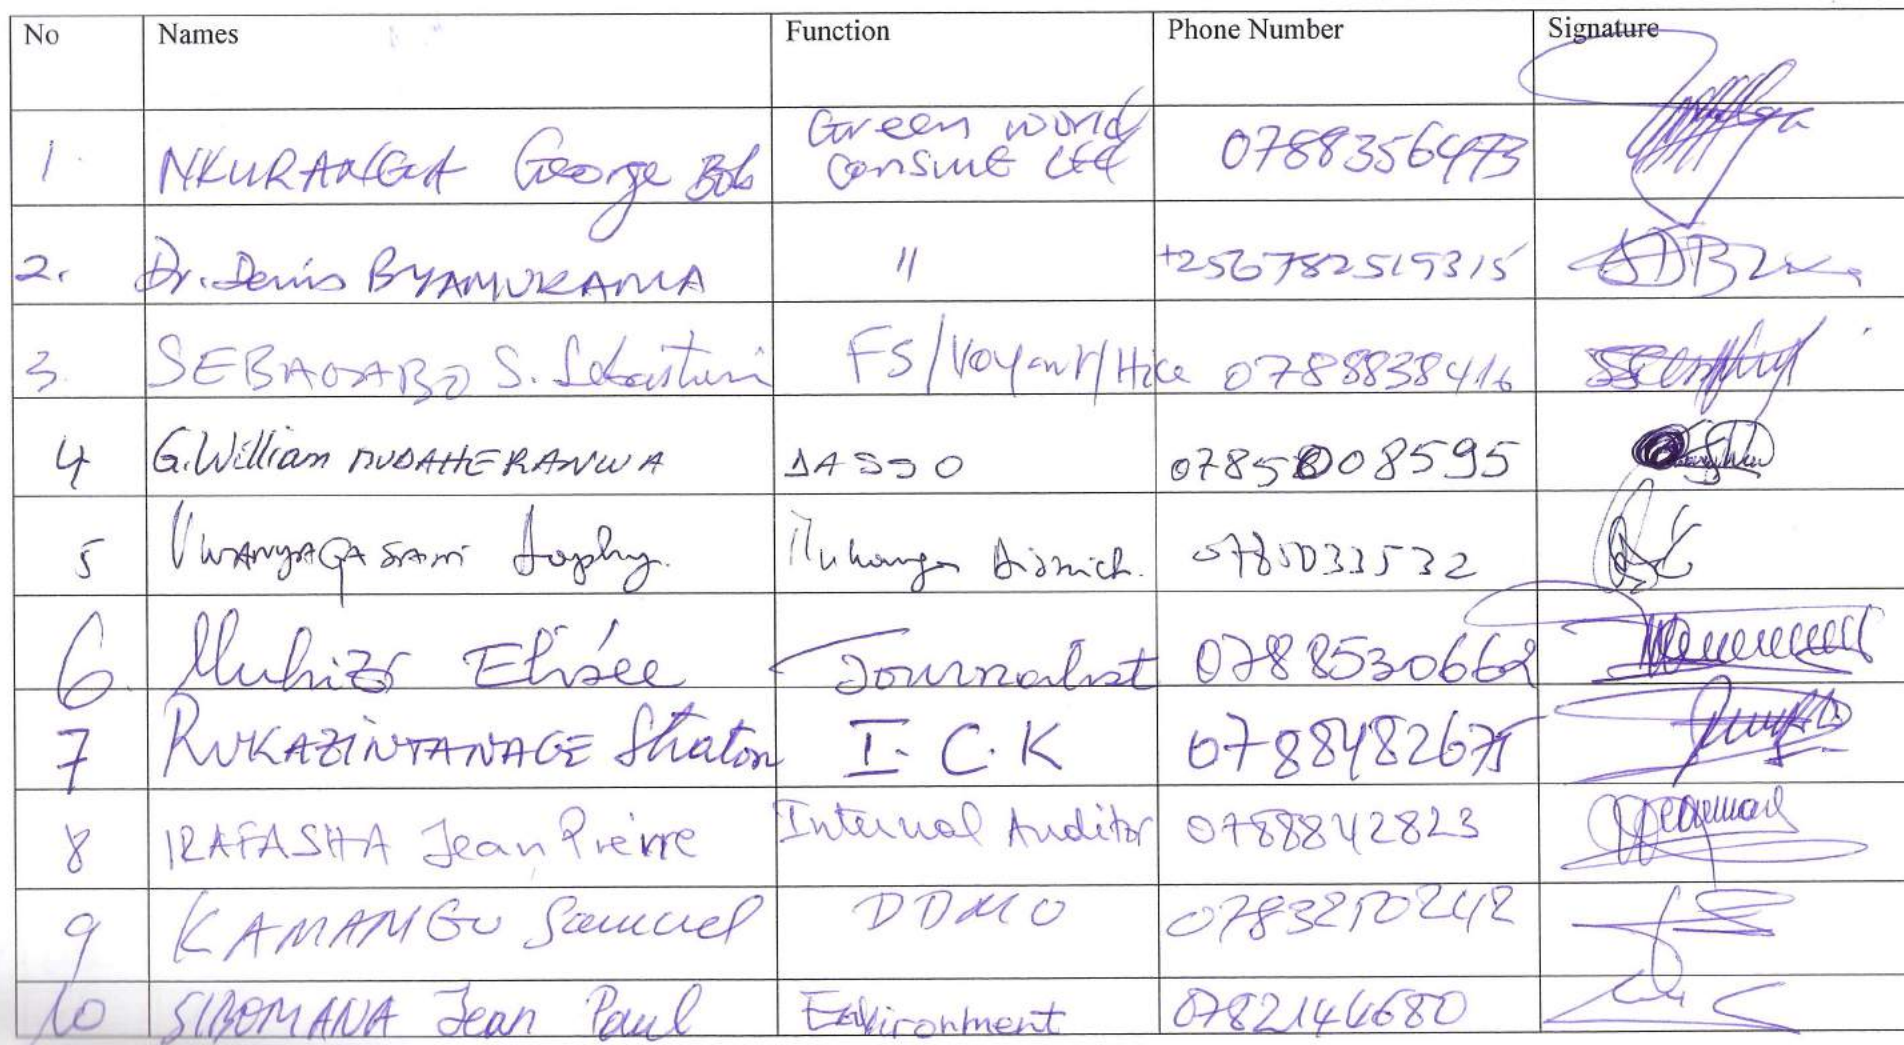 No Names Function Phone Number Signature
1. NKURANGA George Bob Green world
Consult Ltd 0788356473
2. Dr. Denis BYAMUKAMA " +256782519315
3. SEBAGABO S. Sebastien FS/ 0788838416
4 G. William MUDAHERANWA DASSO 0785008595
5 UWANYAGASANI Muhanga District. 0785033532
6. Muhizi Elisée Journalist 0788530662
7 RUKAZINTANAGE Straton I.C.K 0788482675
8 IRAFASHA Jean Pierre Internal Auditor 0788842823
9 KAMANGU Samuel DDMO 0783270242
10 SIBOMANA Jean Paul Environment 0782144680